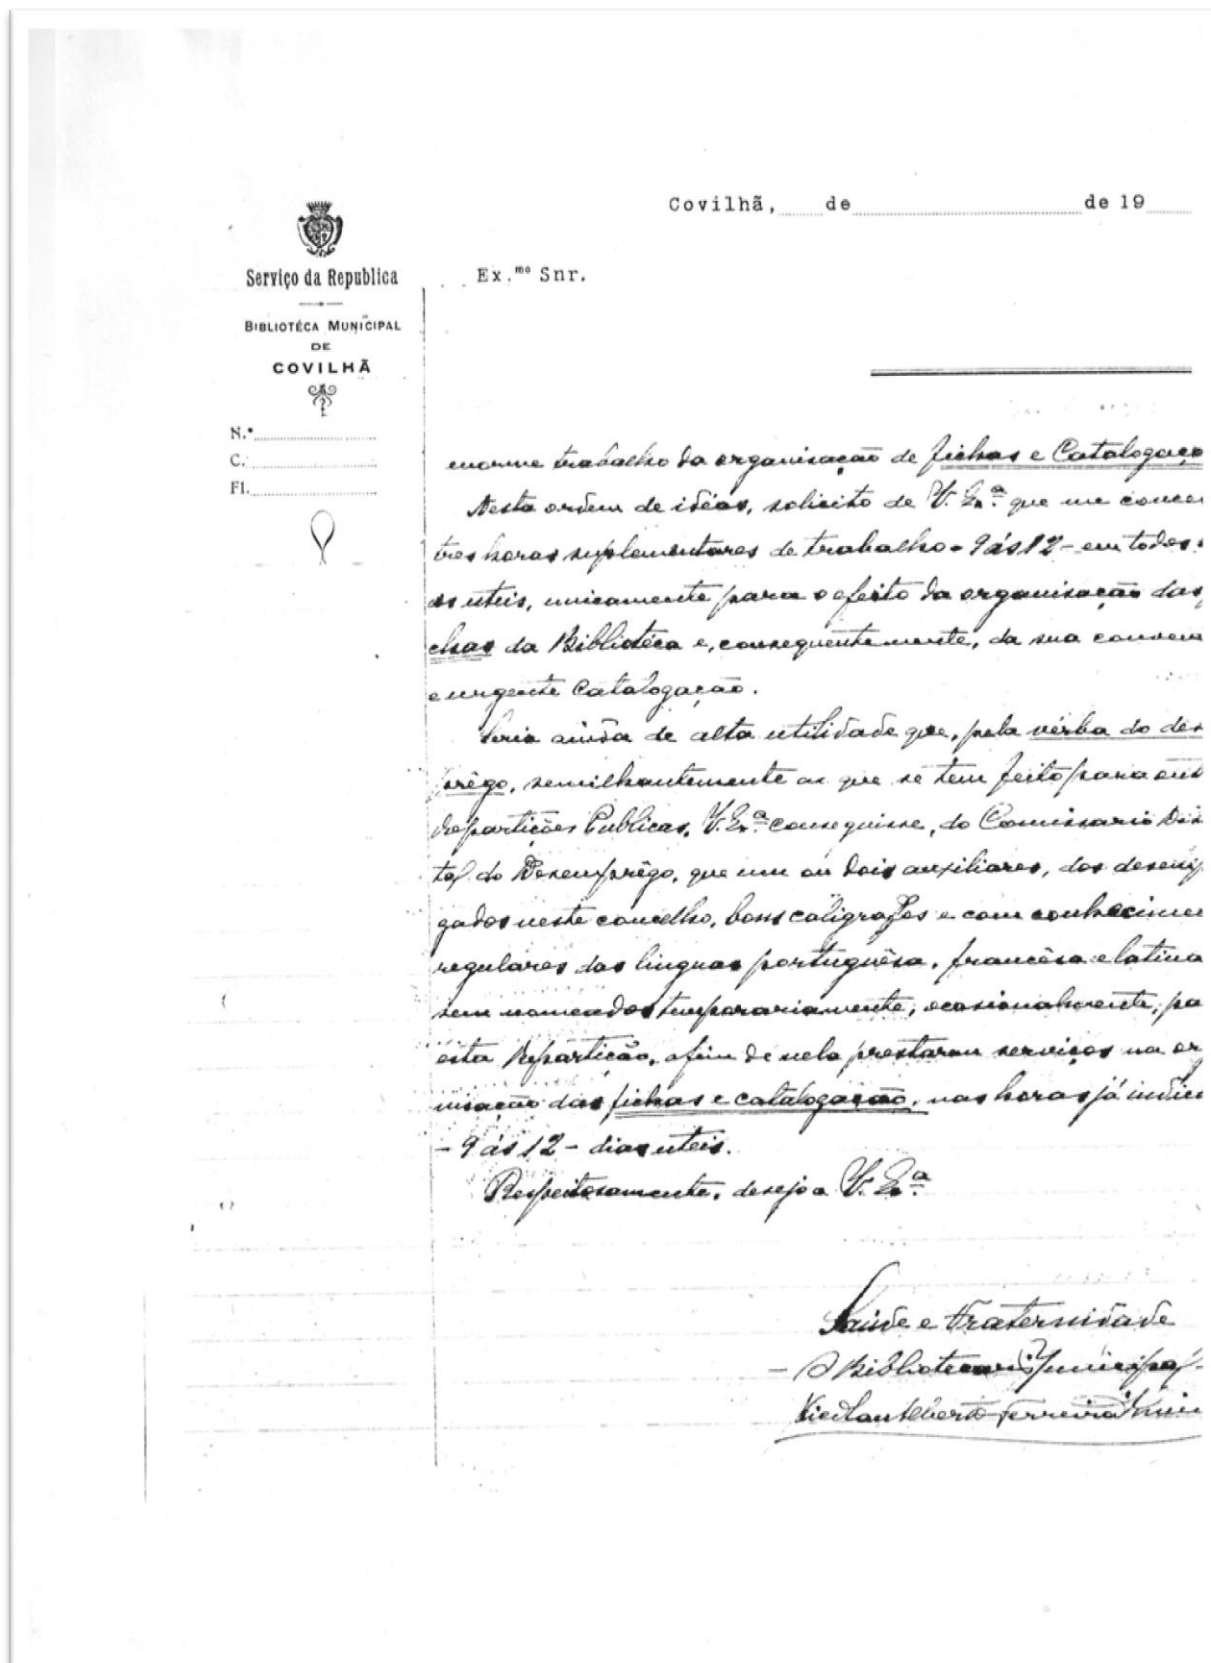 Covilhã, de de 19
Serviço da Republica
Ex.mo Snr.
BIBLIOTÉCA MUNICIPAL
DE
COVILHÃ
N.º
C.
Fl.
enorme trabalho da organisação de fichas e Catalogaçã
Nesta ordem de idéas, solicito de V. Ex.ª que me conce
tres horas suplementares de trabalho - 9 ás 12 - em todos
as uteis, unicamente para o efeito da organisação das
chas da Bibliotéca e, consequentemente, da sua conven
e urgente Catalogação.
Seria ainda de alta utilidade que, pela vérba do des
prêgo, semilhantemente ao que se tem feito para out
Repartições Publicas, V. Ex.ª conseguisse, do Comissario Dis
tal do Desemprêgo, que um ou dois auxiliares, dos desemp
gados neste concelho, bons caligrafos e com conhecimen
regulares das linguas portuguêsa, francêsa e latina
sem nomeados temporariamente, ocasionalmente, pa
esta Repartição, afim de nela prestarem serviços na or
nisação das fichas e catalogação, nas horas já indica
- 9 ás 12 - dias uteis.
Respeitosamente, desejo a V. Ex.ª
Saúde e Fraternidade
- O Bibliotecario Municipal -
Ferreira